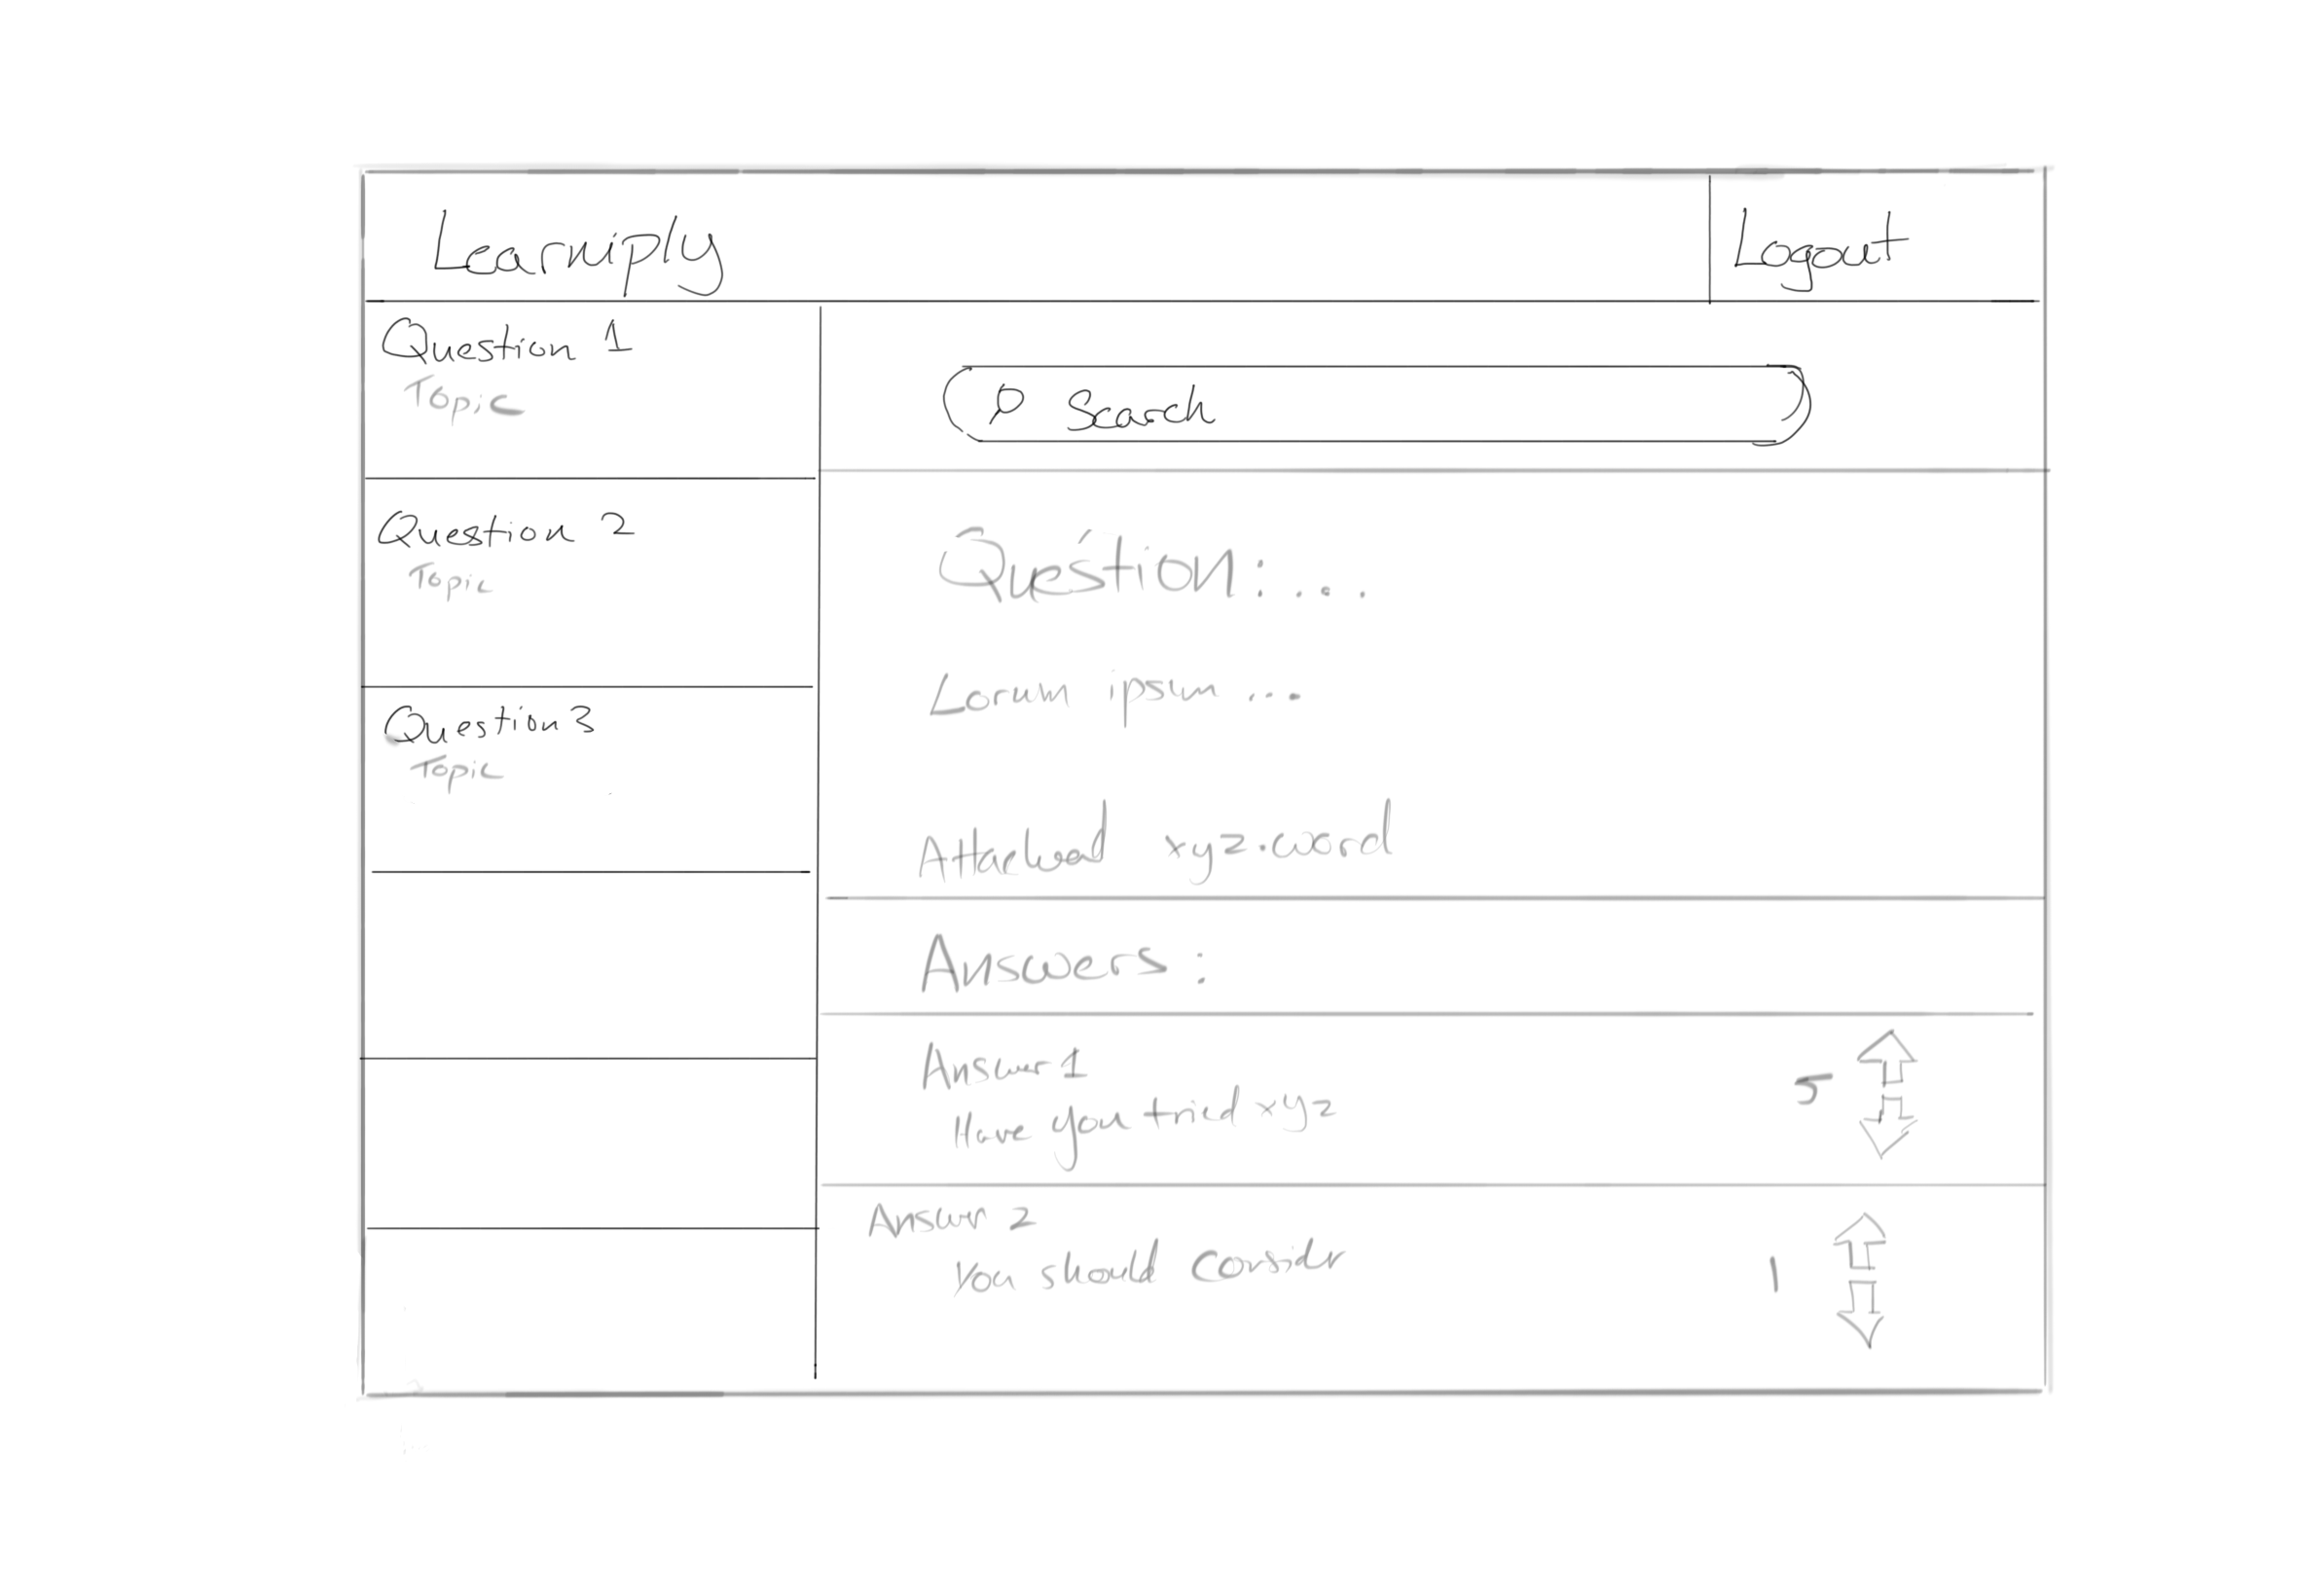 Learniply
Logout
Question 1
Topic
Question 2
Topic
Question 3
Topic
Search
Question: ...
Lorum ipsum ...
Attached xyz.word
Answers:
Answer 1
Have you tried xyz
5
Answer 2
You should considr
1